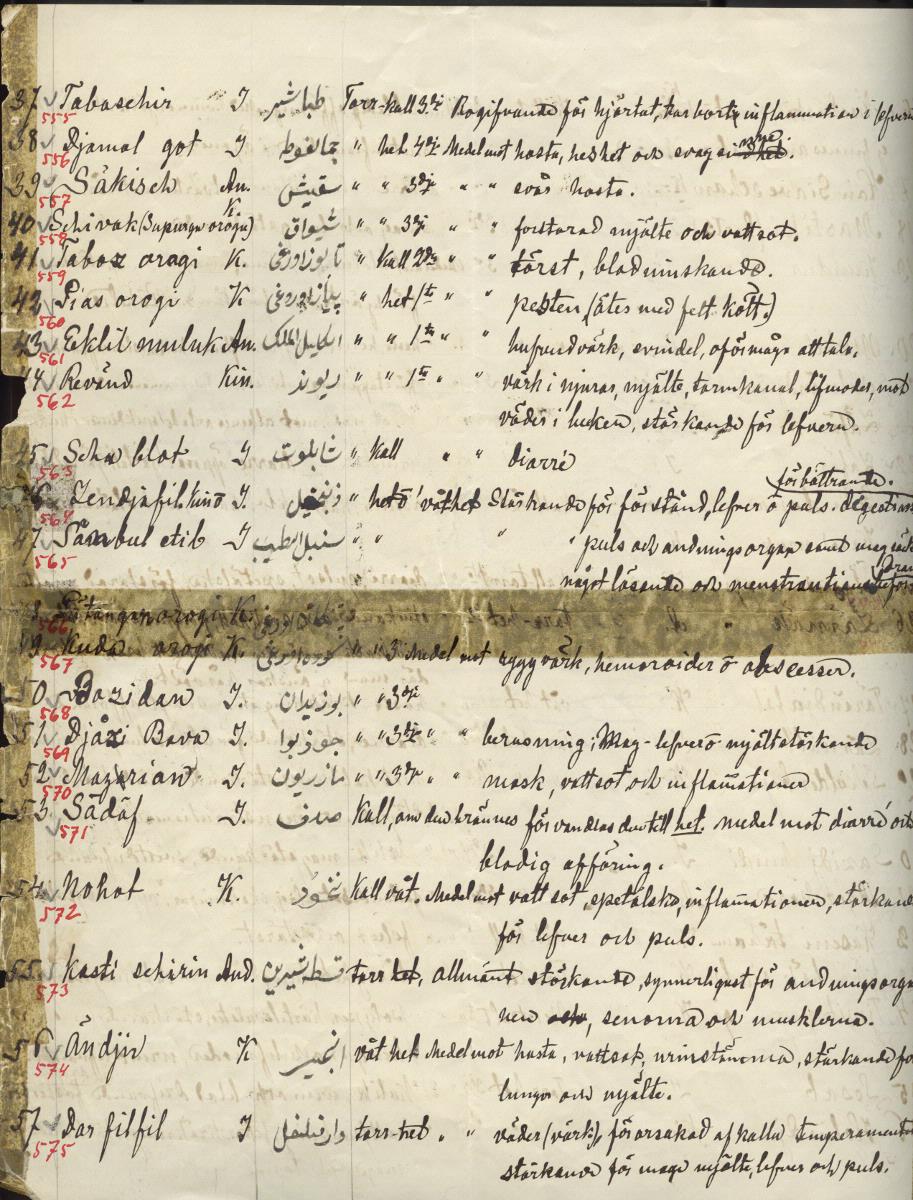 37 Tabaschir I طباشير Torr-kall 3di Rogifvande för hjärtat, tar bort inflammation i lefvern
555
38 Djamal got I جمالغوطه " het 4di Medel mot hosta, heshet och svag
556
39 Säkisch An. سقیش " " 3di " " svår hosta.
557
40 Schivak (Supurga orogu) K. شیواق " " 3di " " förstorad mjälte och vattsot.
558
41 Taboz orogi K. تابوز اوروغی " Kall 2di " " törst, blodminskande.
559
42 Pias orogi K پیاز اوروغی " het 1ta " " pesten (ätes med fett kött.)
560
43 Eklil muluk An. اکلیل الملک " " 1ta " " hufvudvärk, svindel, oförmåga att tala.
561
44 Revänd Kin. ریوند " " 1ta " " värk i njuras, mjälte, tarmkanal, lifmoder, mot
562
väder i buken, stärkande för lefvern.
45 Scha blot I شابلوت " Kall " " diarré
563
förbättrande.
46 Zendjäfil I. زنجفیل " het o våthet Stärkande för förstånd, lefver o puls. digestion
564
47 Sämbul etib I سنبل الطیب " " " " puls och andningsorgan samt mag
565
något lösande och menstruation
48 orogi K.
566
49 Kuda orogi K. " " 3 Medel mot ryggvärk, hemoroider o abscesser.
567
50 Bozidan I. بوزیدان " " 3di
568
51 Djåzi Bava I. جوزبوا " " 3di " " berusning; Mag- lefver o mjältstärkande
569
52 Mazarian I. مازریون " " 3di " " mask, vattsot och inflamationer
570
53 Sädäf I. صدف Kall, om den brännes förvandlas den till het. medel mot diarré och
571
blodig afföring.
54 Nohot K. نخود Kall våt. Medel mot vattsot, spetälska, inflamationer, stärkande
572
för lefver och puls.
55 Kasti schirin And. قسطه شیرین torr het, allmänt stärkande, synnerligast för andningsorga
573
nen och, senorna och musklerna.
56 Ändjir K انجیر våt het Medel mot hosta, vattsot, urinstämma, stärkande för
574
lungor och mjälte.
57 Dar filfil I دارفیلفل torr-het " " väder (värk), förorsakad af kalla temperament
575
stärkande för mage mjälte, lefver och puls.